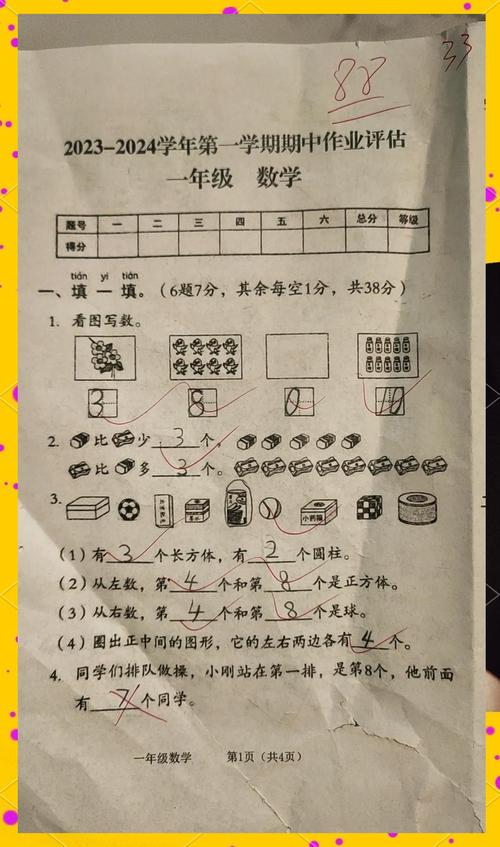 88
33
2023-2024学年第一学期期中作业评估
一年级 数学
题号 一 二 三 四 五 六 总分 等级
得分
tián yi tián
一、填一填。(6题7分，其余每空1分，共38分)
1. 看图写数。
3 8 0 10
2. 比 少 3 个。
比 多 3 个。
3.
小药箱
(1) 有 3 个长方体，有 2 个圆柱。
(2) 从左数，第 4 个和第 8 个是正方体。
(3) 从右数，第 4 个和第 8 个是球。
(4) 圈出正中间的图形，它的左右两边各有 4 个。
4. 同学们排队做操，小刚站在第一排，是第8个，他前面
有 7 个同学。
一年级数学 第1页（共4页）